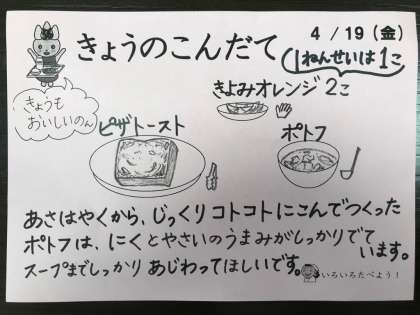 4/19(金)
きょうのこんだて
1ねんせいは1こ
きよみオレンジ2こ
きょうも
おいしいのん
ピザトースト
ポトフ
あさはやくから、じっくりコトコトにこんでつくった
ポトフは、にくとやさいのうまみがしっかりでて
います。
スープまでしっかりあじわってほしいです。
いろいろたべよう!